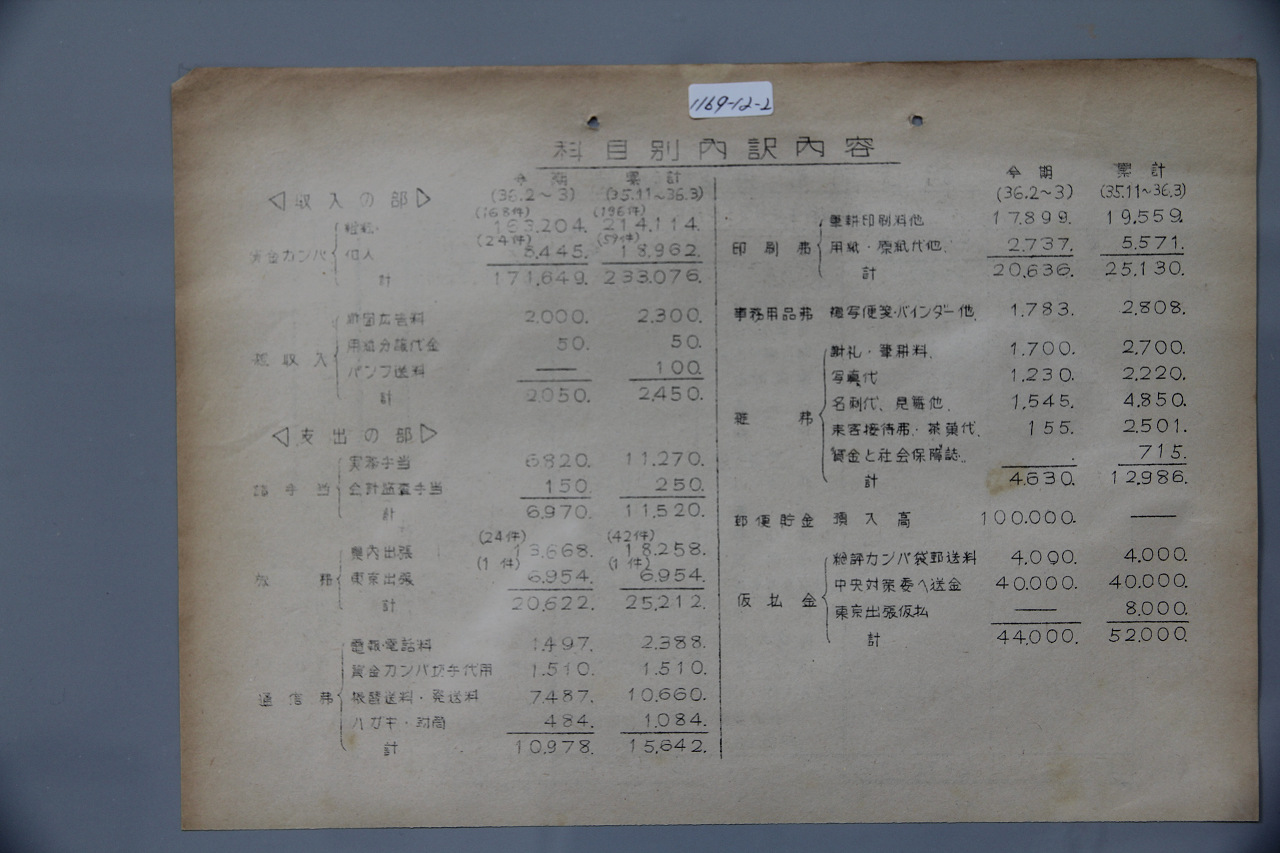 1169-12-2
科目別内訳内容
今期 累計
◁収入の部▷ (36.2~3) (35.11~36.3)
(168件) (196件)
組織 163,204. 214,114.
(24件) (59件)
資金カンパ 個人 8,445. 18,962.
計 171,649. 233,076.
広告料 2,000. 2,300.
用紙分譲代金 50. 50.
雑収入 パンフ送料 ― 100.
計 2,050. 2,450.
◁支出の部▷
実務手当 6,820. 11,270.
諸手当 会計監査手当 150. 250.
計 6,970. 11,520.
(24件) (42件)
県内出張 13,668. 18,258.
(1件) (1件)
旅費 東京出張 6,954. 6,954.
計 20,622. 25,212.
電報・電話料 1,497. 2,388.
資金カンパ切手代用 1,510. 1,510.
通信費 振替送料・発送料 7,487. 10,660.
ハガキ・封筒 484. 1,084.
計 10,978. 15,642.
今期 累計
(36.2~3) (35.11~36.3)
筆耕印刷料他 17,899. 19,559.
印刷費 用紙・原紙代他. 2,737. 5,571.
計 20,636. 25,130.
事務用品費 複写便箋・バインダー他. 1,783. 2,808.
謝礼・筆耕料. 1,700. 2,700.
写真代 1,230. 2,220.
名刺代、見舞他. 1,545. 4,850.
雑費 来客接待費・茶菓代. 155. 2,501.
"賃金と社会保障誌". . 715.
計 4,630. 12,986.
郵便貯金 預入高 100,000. ―
総評カンパ袋郵送料 4,000. 4,000.
中央対策委へ送金 40,000. 40,000.
仮払金 東京出張仮払 ― 8,000.
計 44,000. 52,000.